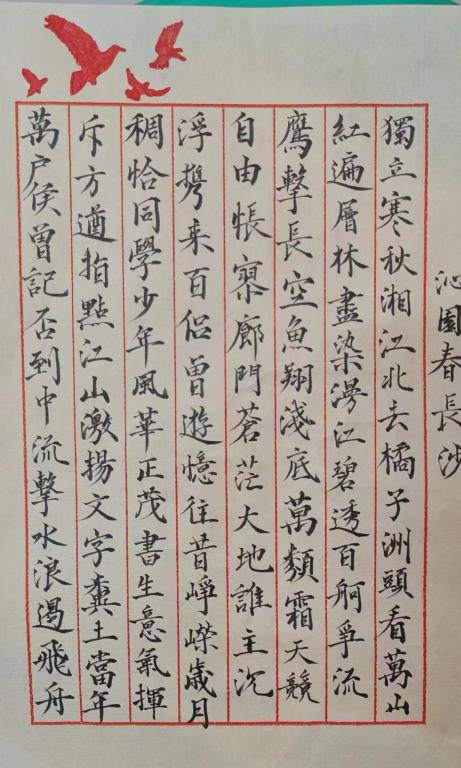 沁園春長沙
獨立寒秋湘江北去橘子洲頭看萬山
紅遍層林盡染漫江碧透百舸爭流
鷹擊長空魚翔淺底萬類霜天競
自由悵寥廊門蒼茫大地誰主沉
浮攜来百侣曾遊憶往昔崢嶸歲月
稠恰同學少年風華正茂書生意氣揮
斥方遒指點江山激揚文字糞土當年
萬户侯曾記否到中流擊水浪遏飛舟